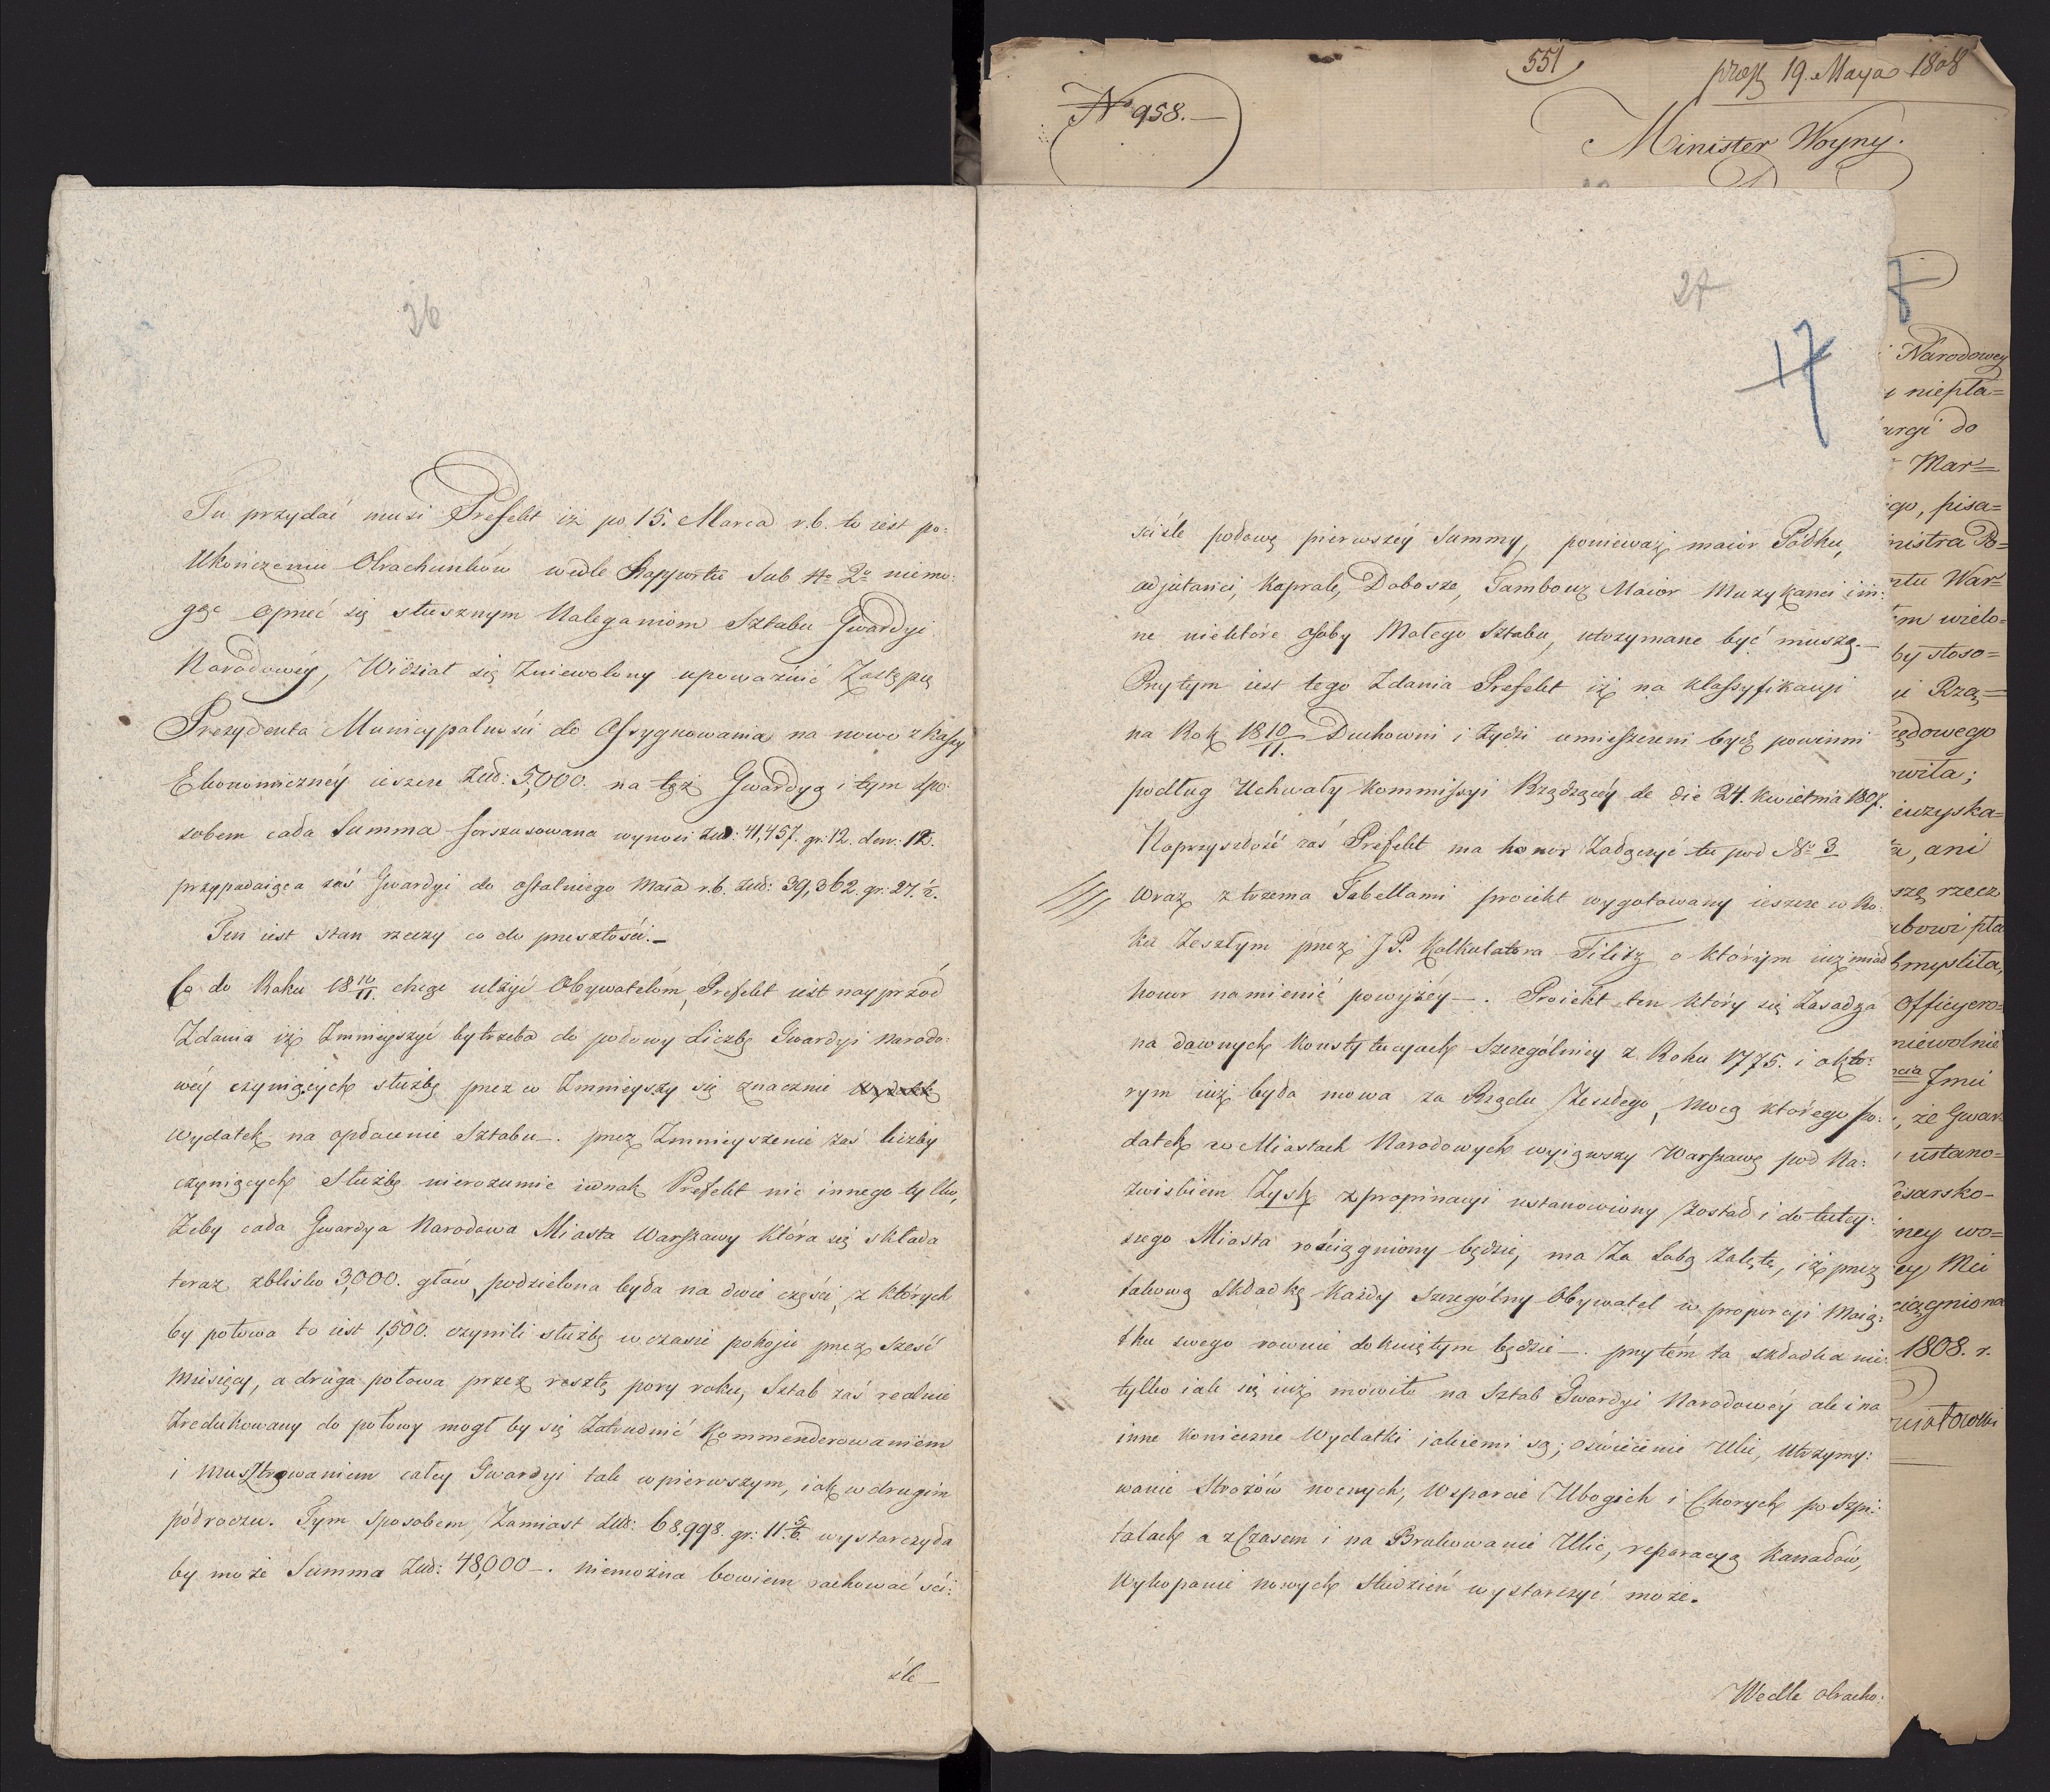 26
Tu przydać musi Prefekt iż po 15. Marca r.b. to iest po:
Ukończeniu Obrachunków wedle Rapportu Sub No 2o niemo:
gąc oprzeć się słusznym Naleganiom Sztabu Gwardyi
Narodowéy, Widział się Zniewolony upoważnić Zastępcę
Prezydenta Municypalności do Assygnowania na nowo z Kassy
Ekonomicznéy ieszcze Złł: 5,000. na tęż Gwardyą i tym spo:
sobem cała Summa forszusowana wynosi Złł: 41,457. gr: 12. den: 12.
przypadaiąca zaś Gwardyi do ostatniego Maia r.b. Złł: 39,362. gr: 27. 1/2.
Ten iest stan rzeczy co do przeszłości.—
Co do Roku 18 10/11. chcąc ulżyć Obywatelom, Prefekt iest nayprzód
Zdania iż Zmnieyszyć by trzeba do połowy Liczbę Gwardyi Narodo:
wéy czyniących służbę przez co Zmnieyszy się znacznie wydatek
wydatek na opłacenie Sztabu—. przez Zmnieyszenie zaś liczby
czyniących Służbę nierozumie iednak Prefekt nic innego tylko,
Żeby cała Gwardya Narodowa Miasta Warszawy która się składa
teraz zblisko 3,000. głów, podzielona była na dwie części, z których
by połowa to iest 1,500. czynili służbę w czasie pokoju przez sześć
Miesięcy, a druga połowa przez resztę pory roku, Sztab zaś realnie
Zredukowany do połowy mogł by się Zatrudnić Kommenderowaniem
i Musztrowaniem całey Gwardyi tak w pierwszym, iak w drugim
półroczu. Tym sposobem, Zamiast Złł: 68,998. gr: 11 5/6. wystarczyła
by może Summa Złł: 48,000—. niemożna bowiem rachować ści:
śle—
27
17
sciśle połowę pierwszéy Summy, ponieważ maior Półku,
adjutanci, Kaprale, Dobosze, Tambour Maior Muzykanci i in:
ne niektóre osoby Małego Sztabu, utrzymane być muszą.—
Przytym iest tego Zdania Prefekt iż na klassyfikacyi
na Rok 18 10/11. Duchowni i Żydzi umieszczeni bydź powinni
podług Uchwały Kommissyi Rządzącéy de die 24. Kwietnia 1807.
Naprzyszłość zaś Prefekt ma honor Załączyć tu pod No 3
Wraz z trzema Tabellami proiekt wygotowany ieszcze w Ro:
ku Zeszłym przez JP. Kalkulatora Tilitz o którym iuż miał
honor namienić powyżéy—. Proiekt ten który się Zasadza
na dawnych Konstytucyach Szczególniey z Roku 1775. i o któ:
rym iuż była mowa za Rządu Zeszłego, mocą którego po:
datek w Miastach Narodowych wyiąwszy Warszawę pod Na:
zwiskiem Zysk z propinacyi ustanowiony został i do tutey:
szego Miasta rościągniony będzie, ma Za Sobą Zaletę, iż przez
takową Składkę Każdy Szczególny Obywatel w proporcyi Maią:
tku swego rownie dokniętym będzie—. przytém ta składka nie:
tylko iak się iuż mówiło na Sztab Gwardyi Narodowéy ale i na
inne konieczne Wydatki iakiemi są; oświécenie Ulic, Utrzymy:
wanie Stróżów nocnych, Wsparcie Ubogich i Chorych po Szpi:
talach a z Czasem i na Brukowanie Ulic, reparacyą Kanałów,
Wykopanie nowych Studzień wystarczyć może.
Wedle obracho:
No 958.—
551
19. Maya 1808
Minister Woyny.
Narodowey
niepła=
do
Mar=
pisa=
War=
stoso=
Rzą=
ani
rzecz
Officyero=
że Gwar
ustano=
wo=
Mci
1808. r.